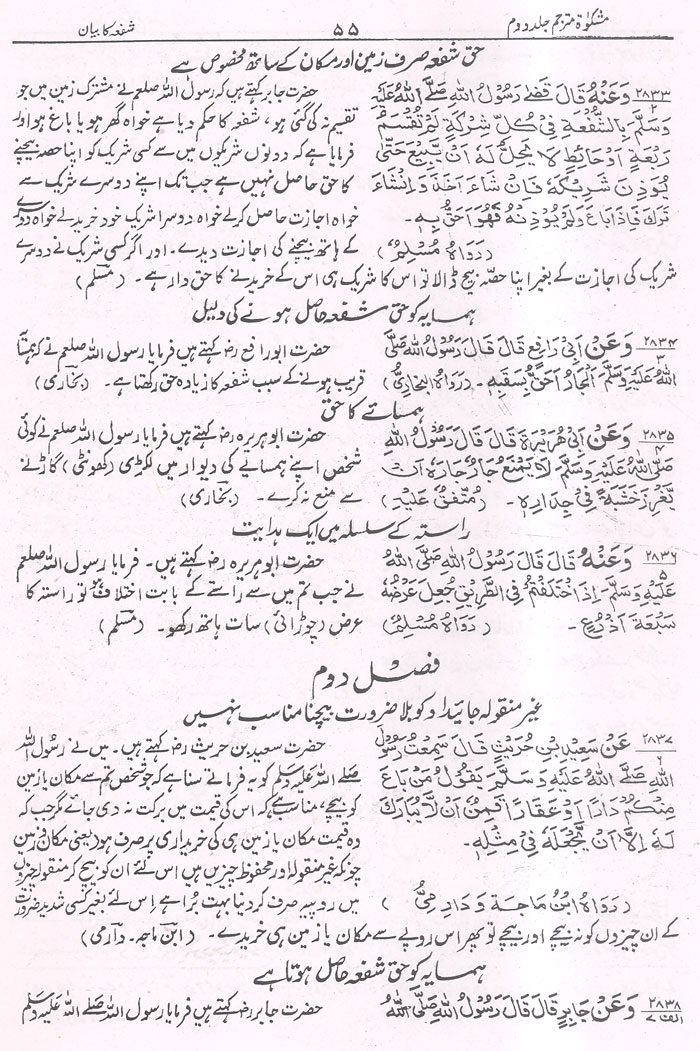 مشکوٰۃ مترجم جلد دوم
۵۵
شفعہ کا بیان
حق شفعہ صرف زمین اور مکان کے ساتھ مخصوص ہے
۲۸۳۳
۲
وَعَنْهُ قَالَ قَضٰے رَسُوْلُ اللهِ صَلَّے اللهُ عَلَيْهِ
وَسَلَّمَ بِالشُّفْعَةِ فِيْ كُلِّ شِرْكَةٍ لَمْ تُقْسَمْ
رَبْعَةٍ اَوْ حَائِطٍ لَا يَحِلُّ لَهُ اَنْ يَّبِيْعَ حَتّٰى
يُوْذِنَ شَرِيْكَهُ فَاِنْ شَاءَ اَخَذَ وَاِنْ شَاءَ
تَرَكَ فَاِذَا بَاعَ وَلَمْ يُوْذِنْهُ فَهُوَ اَحَقُّ بِهٖ۔
(رَوَاهُ مُسْلِمٌ)
حضرت جابر کہتے ہیں کہ رسول اللہ صلعم نے مشترک زمین میں جو
تقسیم نہ کی گئی ہو، شفعہ کا حکم دیا ہے خواہ گھر ہو یا باغ ہو اور
فرمایا ہے کہ دونوں شریکوں میں سے کسی شریک کو اپنا حصہ بیچنے
کا حق حاصل نہیں ہے جب تک اپنے دوسرے شریک سے
خواہ اجازت حاصل کرلے خواہ دوسرا شریک خود خریدلے خواہ دوسرے
کے ہاتھ بیچنے کی اجازت دیدے۔ اور اگر کسی شریک نے دوسرے
شریک کی اجازت کے بغیر اپنا حصہ بیچ ڈالا تو اس کا شریک ہی اس کے خریدنے کا حق دار ہے۔ (مسلم)
ہمسایہ کو حق شفعہ حاصل ہونے کی دلیل
۲۸۳۴
۳
وَعَنْ اَبِيْ رَافِعٍ قَالَ قَالَ رَسُوْلُ اللهِ صَلَّى
اللهُ عَلَيْهِ وَسَلَّمَ اَلْجَارُ اَحَقُّ بِسَقَبِهٖ۔ (رَوَاهُ الْبُخَارِيُّ)
حضرت ابو رافع کہتے ہیں فرمایا رسول اللہ صلعم نے کہ ہمسایہ
قریب ہونے کے سبب شفعہ کا زیادہ حق رکھتا ہے۔ (بخاری)
ہمسائے کا حق
۲۸۳۵
۴
وَعَنْ اَبِيْ هُرَيْرَةَ قَالَ قَالَ رَسُوْلُ اللهِ
صَلَّى اللهُ عَلَيْهِ وَسَلَّمَ لَا يَمْنَعُ جَارٌ جَارَهُ اَنْ
يَّغْرِزَ خَشَبَةً فِيْ جِدَارِهٖ۔ (مُتَّفَقٌ عَلَيْهِ)
حضرت ابو ہریرہ رض کہتے ہیں فرمایا رسول اللہ صلعم نے کوئی
شخص اپنے ہمسائے کی دیوار میں لکڑی (کھونٹی) گاڑنے
سے منع نہ کرے۔ (بخاری)
راستہ کے سلسلہ میں ایک ہدایت
۲۸۳۶
۵
وَعَنْهُ قَالَ قَالَ رَسُوْلُ اللهِ صَلَّى اللهُ
عَلَيْهِ وَسَلَّمَ۔ اِذَا اخْتَلَفْتُمْ فِي الطَّرِيْقِ جُعِلَ عَرْضُهُ
سَبْعَةَ اَذْرُعٍ۔ (رَوَاهُ مُسْلِمٌ)
حضرت ابو ہریرہ رض کہتے ہیں۔ فرمایا رسول اللہ صلعم
نے جب تم میں سے راستے کے بابت اختلاف ہو تو راستہ کا
عرض (چوڑائی) سات ہاتھ رکھو۔ (مسلم)
فصل دوم
غیر منقولہ جائیداد کو بلا ضرورت بیچنا مناسب نہیں
۲۸۳۷
۶
عَنْ سَعِيْدِ بْنِ حُرَيْثٍ قَالَ سَمِعْتُ رَسُوْلَ
اللهِ صَلَّے اللهُ عَلَيْهِ وَسَلَّمَ يَقُوْلُ مَنْ بَاعَ
مِنْكُمْ دَارًا اَوْ عَقَارًا قَمِنٌ اَنْ لَّا يُبَارَكَ
لَهُ اِلَّا اَنْ يَّجْعَلَهُ فِيْ مِثْلِهٖ۔
(رَوَاهُ ابْنُ مَاجَةَ وَ دَارِمِيُّ)
حضرت سعید بن حریث رض کہتے ہیں۔ میں نے رسول اللہ
صلے اللہ علیہ وسلم کو یہ فرماتے سنا ہے کہ جو شخص تم سے مکان یا زمین
کو بیچے، مناسب ہے کہ اس کی قیمت میں برکت نہ دی جائے مگر جب کہ
وہ قیمت مکان یا زمین ہی کی خریداری پر صرف ہو (یعنی مکان و زمین
چونکہ غیر منقولہ اور محفوظ چیزیں ہیں اس لئے ان کو بیچ کر منقولہ چیزوں
میں روپیہ صرف کر دینا بہت بُرا ہے اس لئے بغیر کسی شدید ضرورت
کے ان چیزوں کو نہ بیچے اور بیچے تو پھر اس روپے سے مکان یا زمین ہی خریدے۔ (ابن ماجہ۔ دارمی)
ہمسایہ کو حق شفعہ حاصل ہوتا ہے
۲۸۳۸
۷
وَعَنْ جَابِرٍ قَالَ قَالَ رَسُوْلُ اللهِ صَلَّى اللهُ
حضرت جابر رض کہتے ہیں فرمایا رسول اللہ صلے اللہ علیہ وسلم